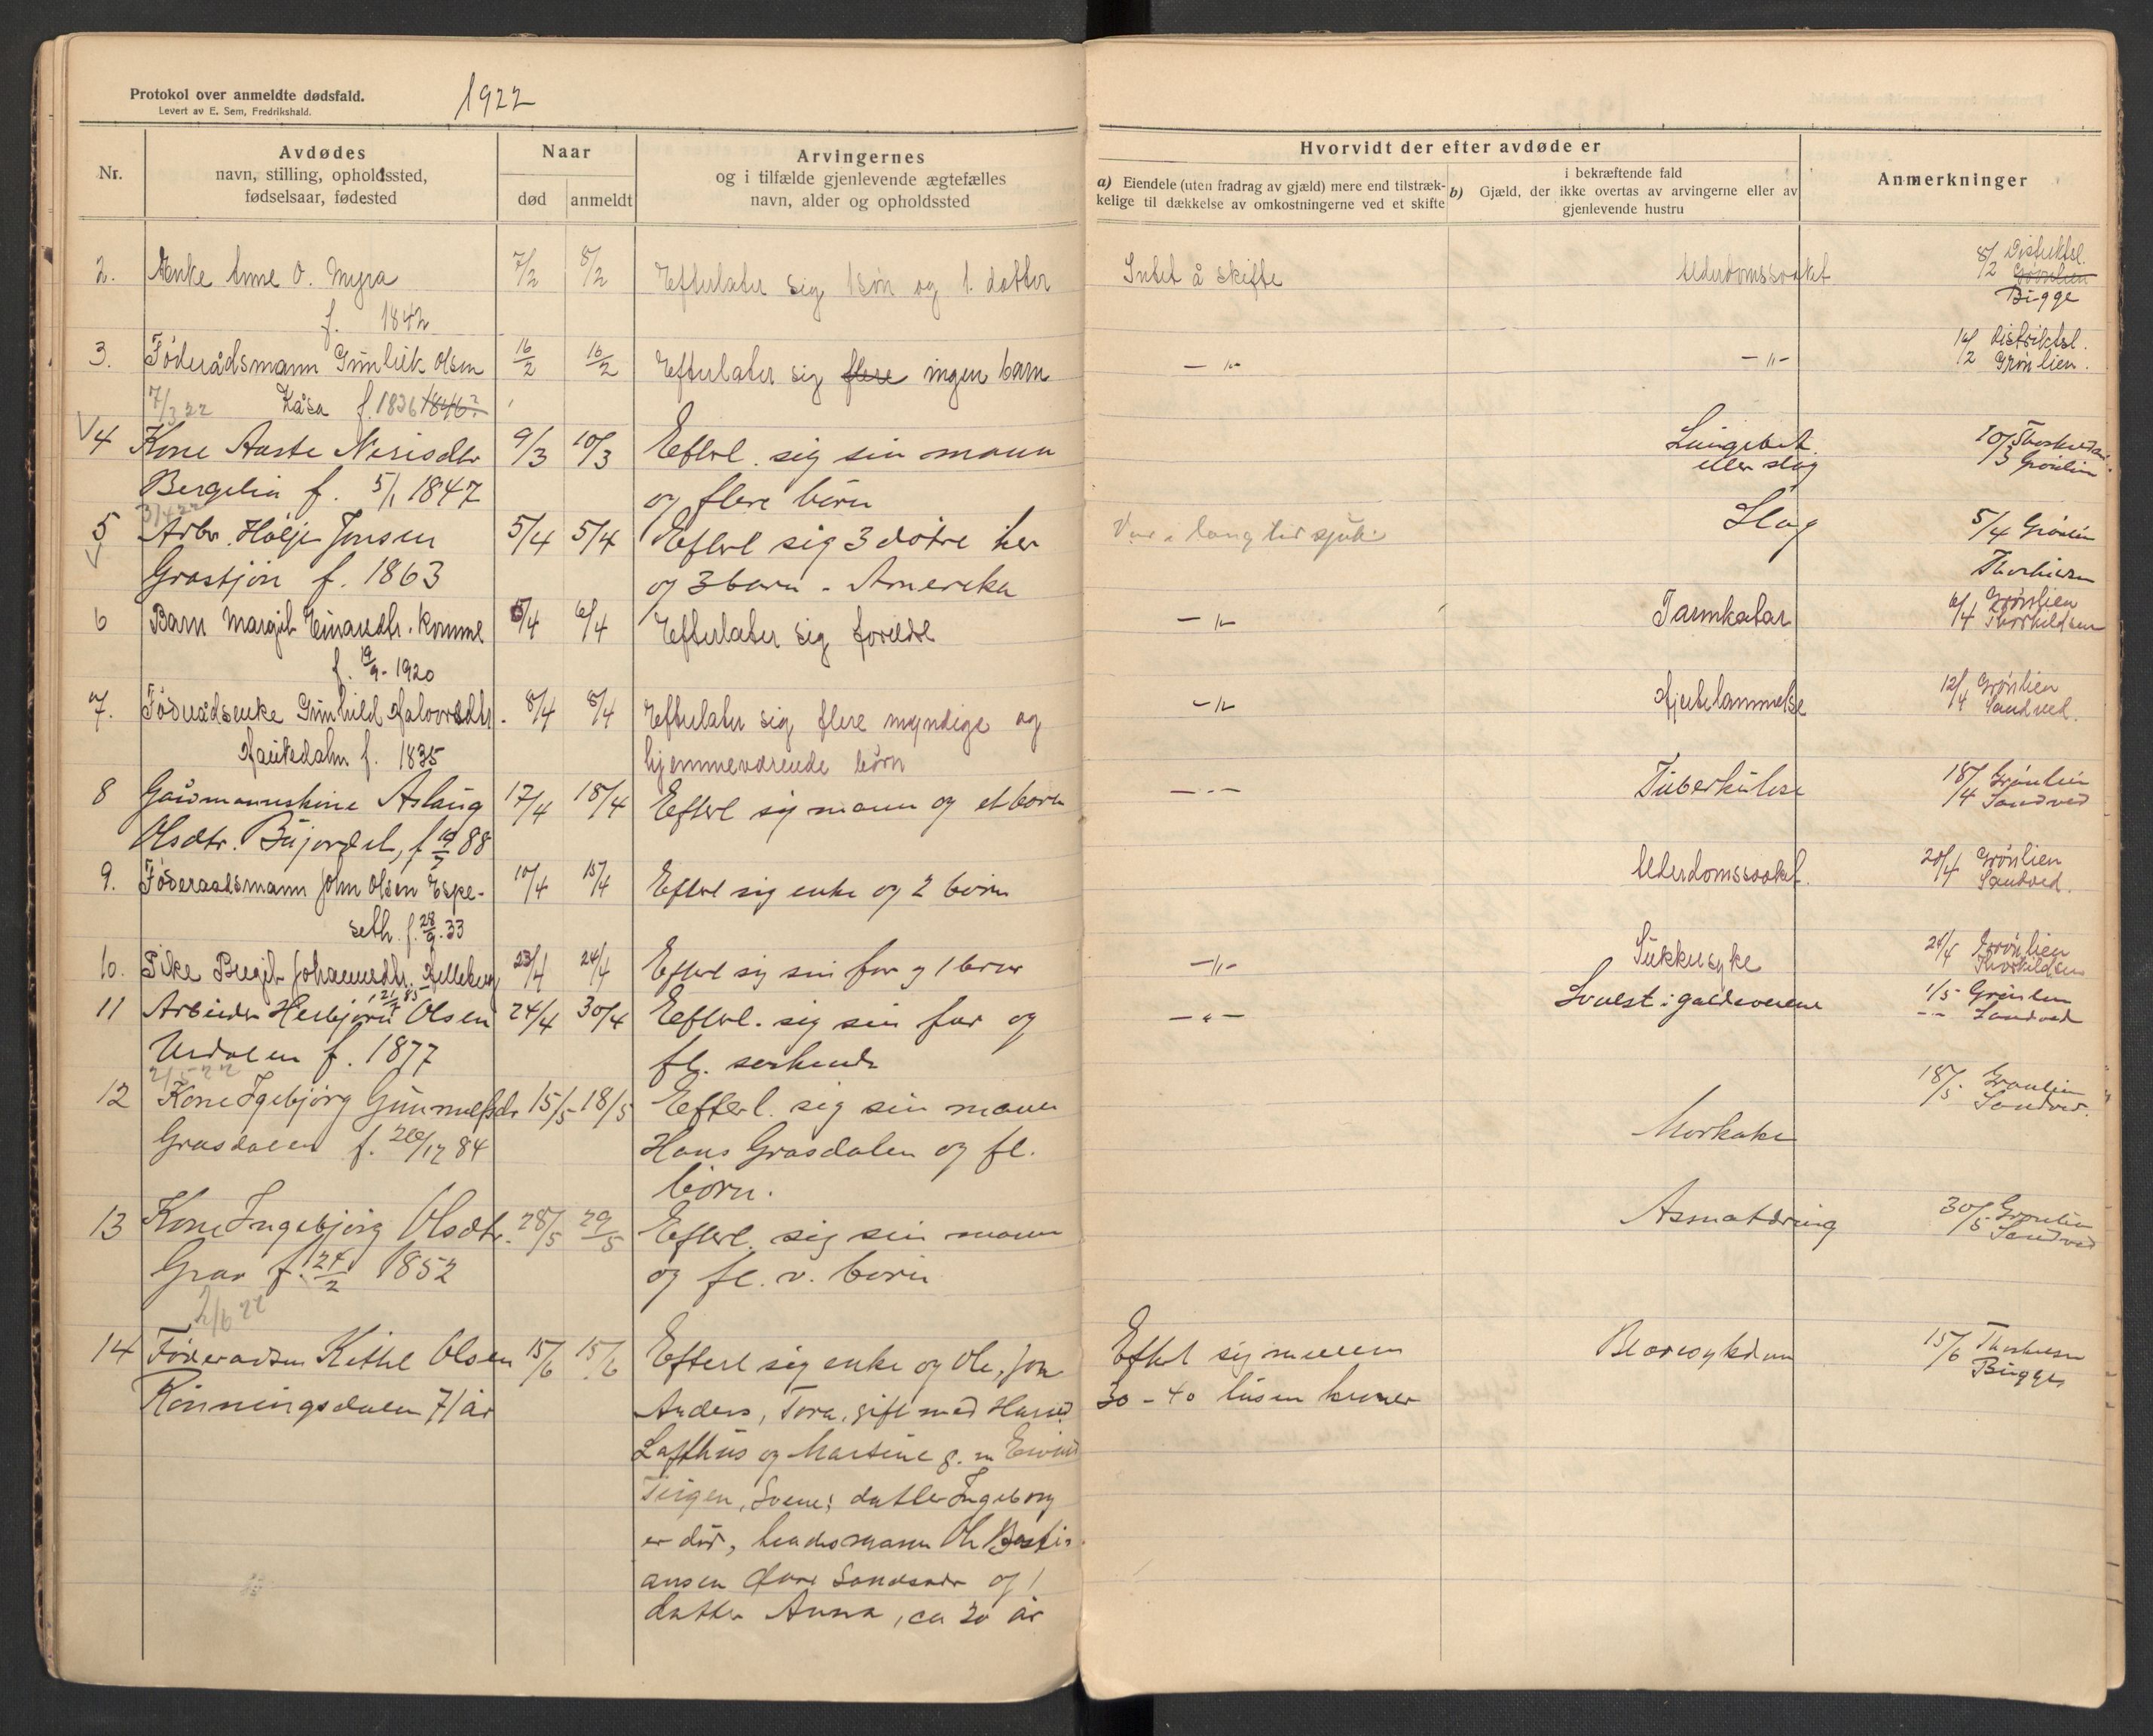 Protokol over anmeldte dødsfald.
Levert av E. Sem, Fredrikshald.
1922
Nr.
Avdødes
navn, stilling, opholdssted,
fødselsaar, fødested
Naar
død
anmeldt
Arvingernes
og i tilfælde gjenlevende ægtefælles
navn, alder og opholdssted
Hvorvidt der efter avdøde er
a) Eiendele (uten fradrag av gjæld) mere end tilstræk-
kelige til dækkelse av omkostningerne ved et skifte
i bekræftende fald
b) Gjæld, der ikke overtas av arvingerne eller av
gjenlevende hustru
Anmerkninger
2. Enke Anne O. Myra 7/2 8/2 Efterlater sig 1 søn og 1. datter Intet å skifte Alderdomssvaket 8/2 Distriktsl.
f. 1842 Grønlien
Bigge
3. Føderådsmann Gunleik Olsen 16/2 16/2 Efterlater sig flere ingen barn -"- -"- 16/2 distriktsl.
Grønlien.
7/3 22 Kåsa f. 1836 1846?
4 Kone Aaste Nerisdtr 9/3 10/3 Efterl. sig sin mann Lungebet. 10/3
eller slag Grønlien
Bergelia f. 5/1 1847 og flere børn
3/4 22
5 Arbr. Hølje Jonsen 5/4 5/4 Efterl sig 3 døtre her Var i lang tid sjuk. Slag 5/4 Grønlien
Grastjøn f. 1863 og 3 barn - Amerika
6 Barn Margit Einarsdtr. Komme 5/4 6/4 Efterlater sig foreldre -"- Tarmkatar 6/4 Grønlien
Thorkildsen
f. 19/9-1920
7. Føderådsenke Gunhild Halvorsdtr. 8/4 8/4 Efterlater sig flere myndige og -"- Hjertelammelse 12/4 Grønlien
Sandved.
Haukedalen f. 1835 hjemmeværende børn
8 Gårdmannskone Aslaug 17/4 18/4 Efterl sig mann og et barn -"- Tuberkulose 18/4 Grønlien
Sandved
Olsdtr. Bujordet, f 88
9. Føderaadsmann John Olsen Espe- 10/4 15/4 Efterl sig enke og 2 børn Alderdomssvaket. 20/4 Grønlien
Sandved.
seth. f. 28/9.33
10. Pike Bergit Johannesdtr. 23/4 24/4 Efterl sig sin far og 1 bror -"- Sukkersyke 24/4 Grønlien
Thorkildsen
11 Arbeider Herbjørn Olsen 24/4 30/4 Efterl. sig sin far og -"- Svulst i galdeveiene 1/5 Grønlien
-- Sandved
Urdalen f. 1877 fl. søskende
2/5 22
12 Kone Igebjørg Gunnulfsdr 15/5 18/5 Efterl. sig sin mann 18/5. Grønlien
Sandved.
Grasdalen f. 20/12 84 Hans Grasdalen og fl. Morkake
børn.
13 Kone Ingebjørg Olsdtr. 28/5 29/5 Efterl. sig sin mann 30/5 Grønlien
Sandved
Grav f. 24/2 1852 og fl. v. børn
2/6 22
14 Føderadsm Kittil Olsen 15/6 15/6 Efterl sig enke og Ole, Jon Blæresykdom 15/6
Bugge
Rønningsdalen 71 år Anders, Tora, gift med 30 - 40 tusen kroner
Lofthus og Martine g. m Eivind
datter Ingeborg
er død, hendes mann Ole Basti-
ansen og 1
datter Anna, ca 20 år